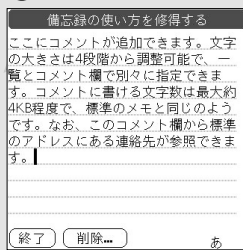 備忘録の使い方を修得する
ここにコメントが追加できます。文字
の大きさは4段階から調整可能で、一
覧とコメント欄で別々に指定できま
す。コメントに書ける文字数は最大約
4KB程度で、標準のメモと同じのよう
です。なお、このコメント欄から標準
のアドレスにある連絡先が参照できま
す。
終了 削除... あ